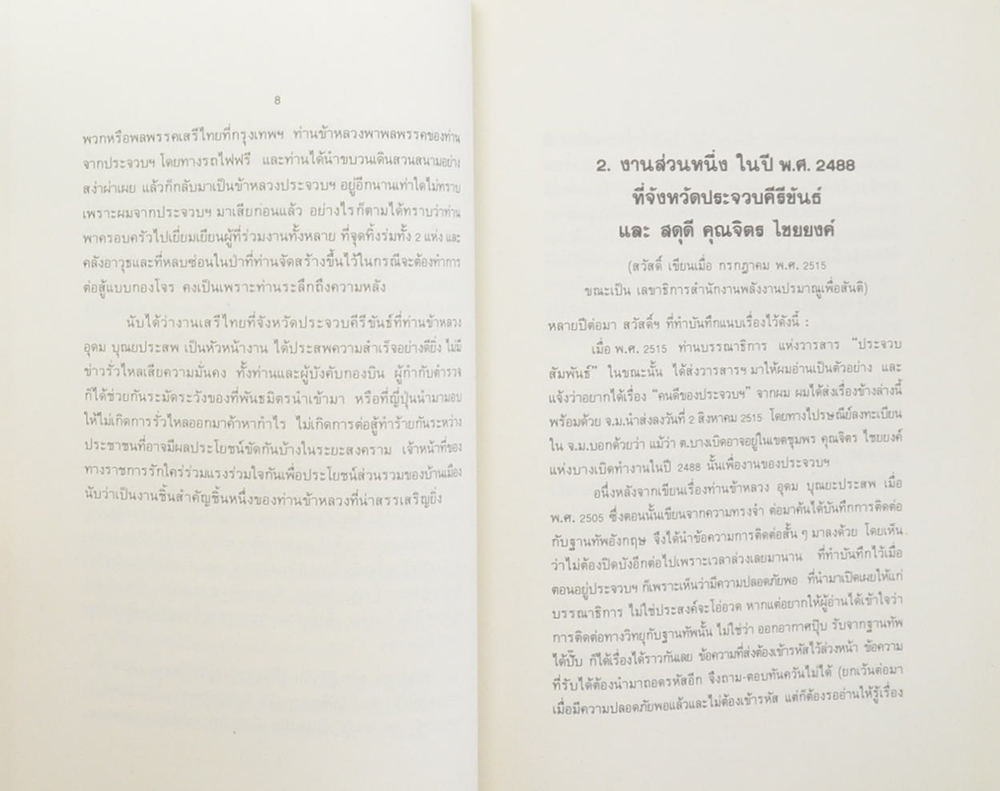 8
พวกหรือพลพรรคเสรีไทยที่กรุงเทพฯ ท่านข้าหลวงพาพลพรรคของท่าน
จากประจวบฯ โดยทางรถไฟฟรี และท่านได้นำขบวนเดินสวนสนามอย่าง
สง่าผ่าเผย แล้วก็กลับมาเป็นข้าหลวงประจวบฯ อยู่อีกนานเท่าใดไม่ทราบ
เพราะผมจากประจวบฯ มาเสียก่อนแล้ว อย่างไรก็ตามได้ทราบว่าท่าน
พาครอบครัวไปเยี่ยมเยียนผู้ที่ร่วมงานทั้งหลาย ที่จุดทิ้งร่มทั้ง 2 แห่ง และ
คลังอาวุธและที่หลบซ่อนในป่าที่ท่านจัดสร้างขึ้นไว้ในกรณีจะต้องทำการ
ต่อสู้แบบกองโจร คงเป็นเพราะท่านระลึกถึงความหลัง
นับได้ว่างานเสรีไทยที่จังหวัดประจวบคีรีขันธ์ที่ท่านข้าหลวง
อุดม บุณยประสพ เป็นหัวหน้างาน ได้ประสพความสำเร็จอย่างดียิ่ง ไม่มี
ข่าวรั่วไหลเสียความมั่นคง ทั้งท่านและผู้บังคับกองบิน ผู้กำกับตำรวจ
ก็ได้ช่วยกันระมัดระวังของที่พันธมิตรนำเข้ามา หรือที่ญี่ปุ่นนำมามอบ
ให้ไม่เกิดการรั่วไหลออกมาค้าหากำไร ไม่เกิดการต่อสู้ทำร้ายกันระหว่าง
ประชาชนที่อาจมีผลประโยชน์ขัดกันบ้างในระยะสงคราม เจ้าหน้าที่ของ
ทางราชการรักใคร่ร่วมแรงร่วมใจกันเพื่อประโยชน์ส่วนรวมของบ้านเมือง
นับว่าเป็นงานชิ้นสำคัญชิ้นหนึ่งของท่านข้าหลวงที่น่าสรรเสริญยิ่ง
2. งานส่วนหนึ่ง ในปี พ.ศ. 2488
ที่จังหวัดประจวบคีรีขันธ์
และ สดุดี คุณจิตร ไชยยงค์
(สวัสดิ์ เขียนเมื่อ กรกฎาคม พ.ศ. 2515
ขณะเป็น เลขาธิการสำนักงานพลังงานปรมาณูเพื่อสันติ)
หลายปีต่อมา สวัสดิ์ฯ ที่ทำบันทึกแนบเรื่องไว้ดังนี้ :
เมื่อ พ.ศ. 2515 ท่านบรรณาธิการ แห่งวารสาร "ประจวบ
สัมพันธ์" ในขณะนั้น ได้ส่งวารสารฯ มาให้ผมอ่านเป็นตัวอย่าง และ
แจ้งว่าอยากได้เรื่อง "คนดีของประจวบฯ" จากผม ผมได้ส่งเรื่องข้างล่างนี้
พร้อมด้วย จ.ม.นำส่งลงวันที่ 2 สิงหาคม 2515 โดยทางไปรษณีย์ลงทะเบียน
ใน จ.ม.บอกด้วยว่า แม้ว่า ต.บางเบิดอาจอยู่ในเขตชุมพร คุณจิตร ไชยยงค์
แห่งบางเบิดทำงานในปี 2488 นั้นเพื่องานของประจวบฯ
อนึ่งหลังจากเขียนเรื่องท่านข้าหลวง อุดม บุณยะประสพ เมื่อ
พ.ศ. 2505 ซึ่งตอนนั้นเขียนจากความทรงจำ ต่อมาค้นได้บันทึกการติดต่อ
กับฐานทัพอังกฤษ จึงได้นำข้อความการติดต่อสั้น ๆ มาลงด้วย โดยเห็น
ว่าไม่ต้องปิดบังอีกต่อไปเพราะเวลาล่วงเลยมานาน ที่ทำบันทึกไว้เมื่อ
ตอนอยู่ประจวบฯ ก็เพราะเห็นว่ามีความปลอดภัยพอ ที่นำมาเปิดเผยให้แก่
บรรณาธิการ ไม่ใช่ประสงค์จะโอ่อวด หากแต่อยากให้ผู้อ่านได้เข้าใจว่า
การติดต่อทางวิทยุกับฐานทัพนั้น ไม่ใช่ว่า ออกอากาศปุ๊บ รับจากฐานทัพ
ได้ปั๊บ ก็ได้เรื่องได้ราวกันเลย ข้อความที่ส่งต้องเข้ารหัสไว้ล่วงหน้า ข้อความ
ที่รับได้ต้องนำมาถอดรหัสอีก จึงถาม-ตอบทันควันไม่ได้ (ยกเว้นต่อมา
เมื่อมีความปลอดภัยพอแล้วและไม่ต้องเข้ารหัส แต่ก็ต้องรออ่านให้รู้เรื่อง